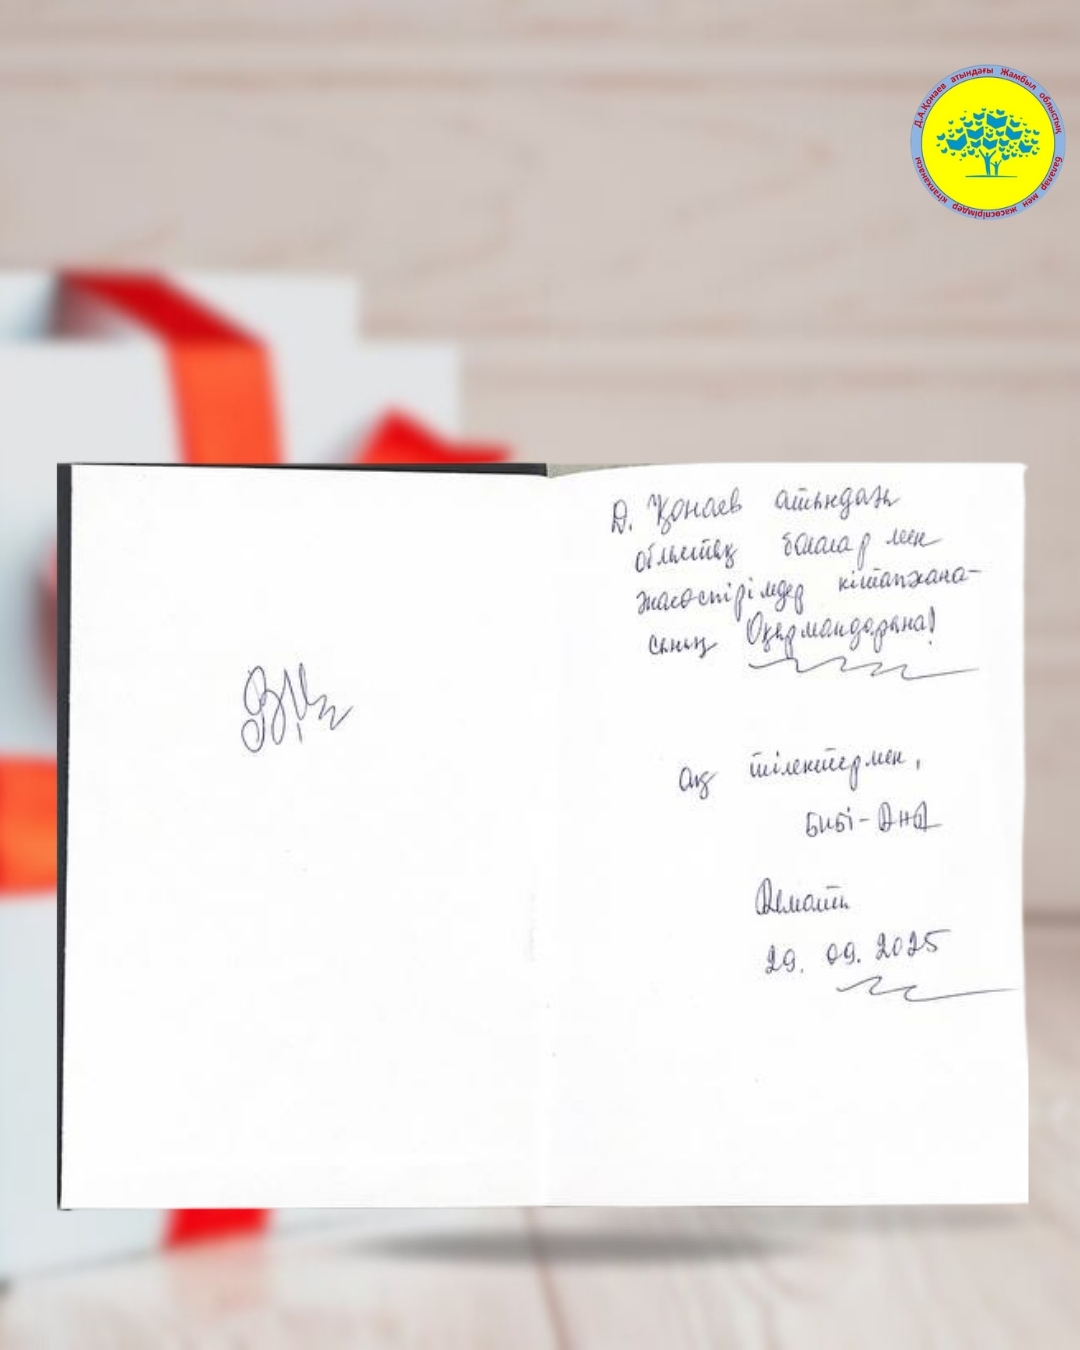 Д.А.Қонаев атындағы Жамбыл облыстық
балалар мен жасөспірімдер кітапханасы
Д. Қонаев атындағы
облыстық балалар мен
жасөспірімдер кітапхана-
сының Оқырмандарына!
Ақ тілектермен,
БИБІ-АНА
Алматы
29. 09. 2025